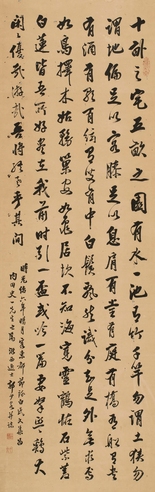 十畝之宅五畝之園有水一池有竹千竿勿謂土狹勿
謂地偏足以容膝足以息肩有堂有庭有橋有船有書
有酒有歌有弦有叟在中白鬚飄然識分知足外無求焉
如鳥擇木姑務巢安如龜居坎不知海寬靈鶴怪石紫菱
白蓮皆吾所好盡在我前時引一盃或吟一篇妻孥熙熙雞犬
閑閑優哉游哉吾將終老乎其間
時光緒六年
内田先生